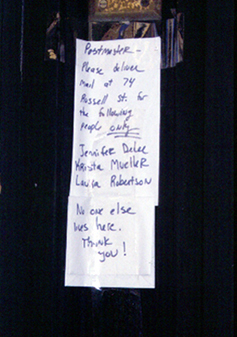 Postmaster -
Please deliver
mail at 74
Russell St. for
the following
people only
Jennifer Dekee
Krista Mueller
Laura Robertson
No one else
lives here.
Thank
you!